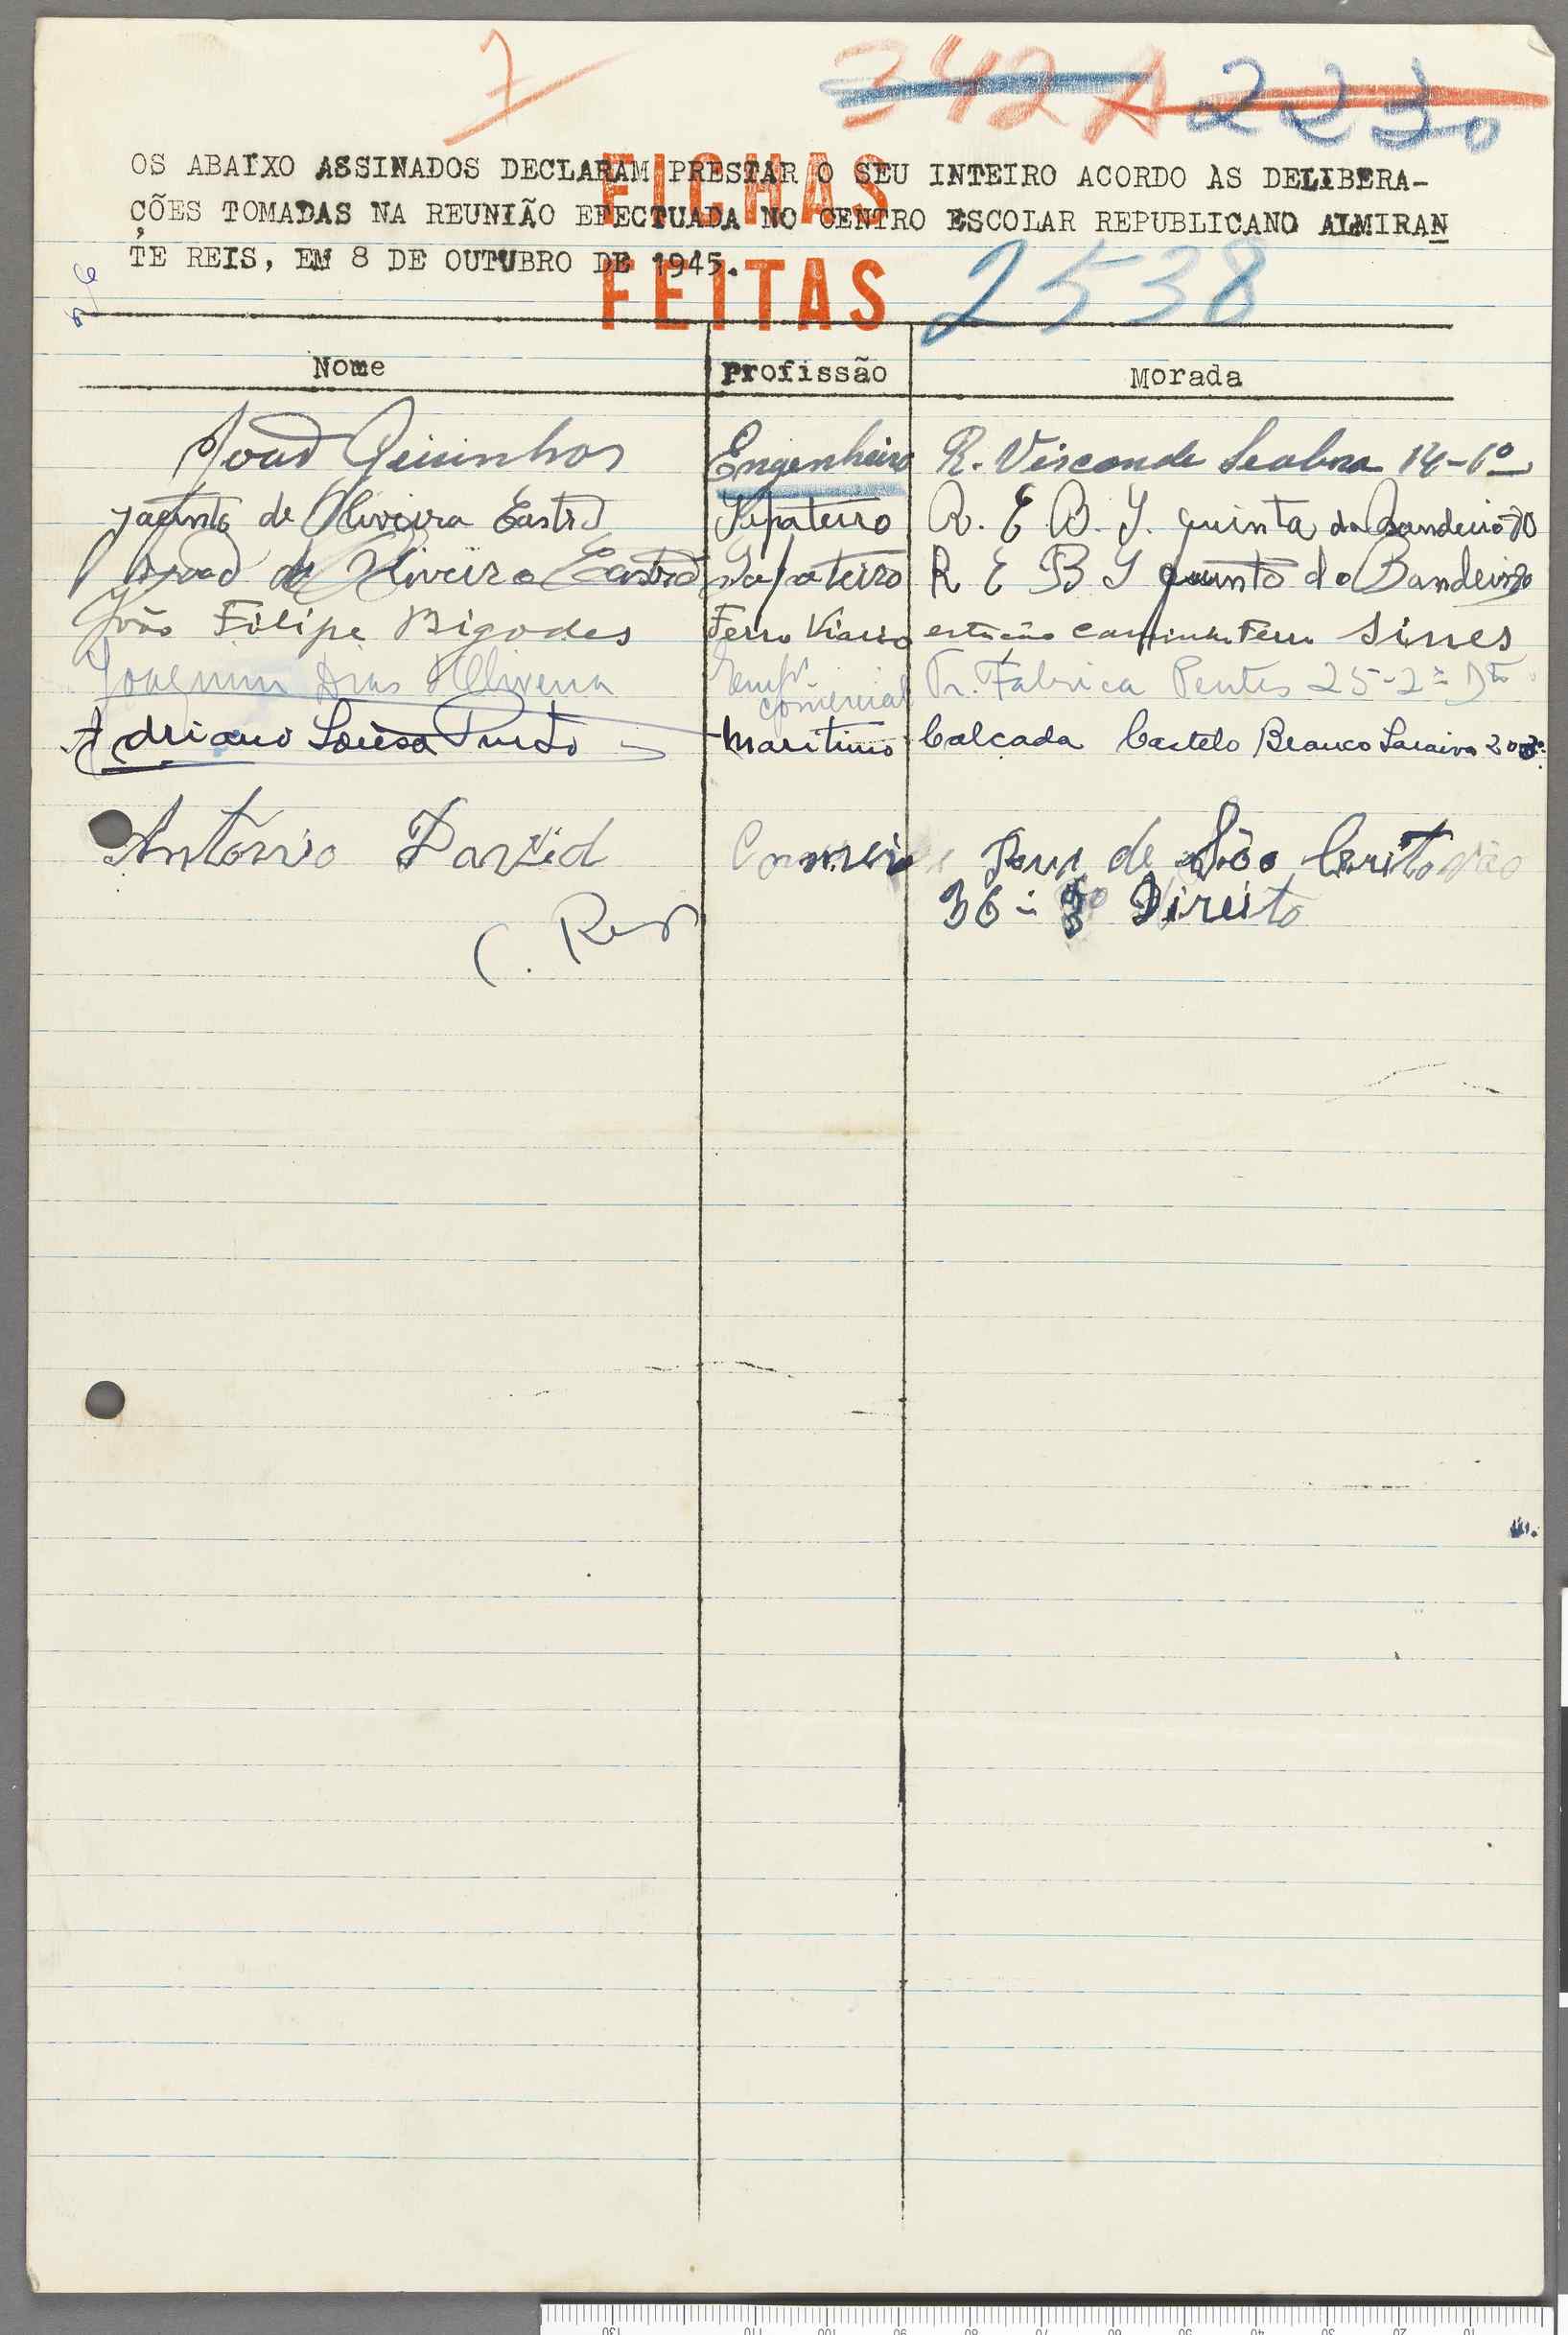 7 342 A 2230
OS ABAIXO ASSINADOS DECLARAM PRESTAR O SEU INTEIRO ACORDO ÀS DELIBERA-
ÇÕES TOMADAS NA REUNIÃO EFECTUADA NO CENTRO ESCOLAR REPUBLICANO ALMIRAN
TE REIS, EM 8 DE OUTUBRO DE 1945.
FICHAS
FEITAS
2538
Nome Profissão Morada
João Engenheiro R. Visconde Seabra 14-1º
Jacinto de Oliveira Castro Sapateiro R. E. B. J. quinta da Bandeira 70
João de Oliveira Castro Sapateiro R E B J quinta da Bandeira
João Filipe Bigodes Ferro Viario estação caminho Ferro Sines
Joaquim Dias d'Oliveira Empº comercial Tr. Fabrica Pentes 25-2º Dto
Adriano Sousa Maritimo Calçada Castelo Branco Saraiva
António David de São Cristovão
36 - Direito